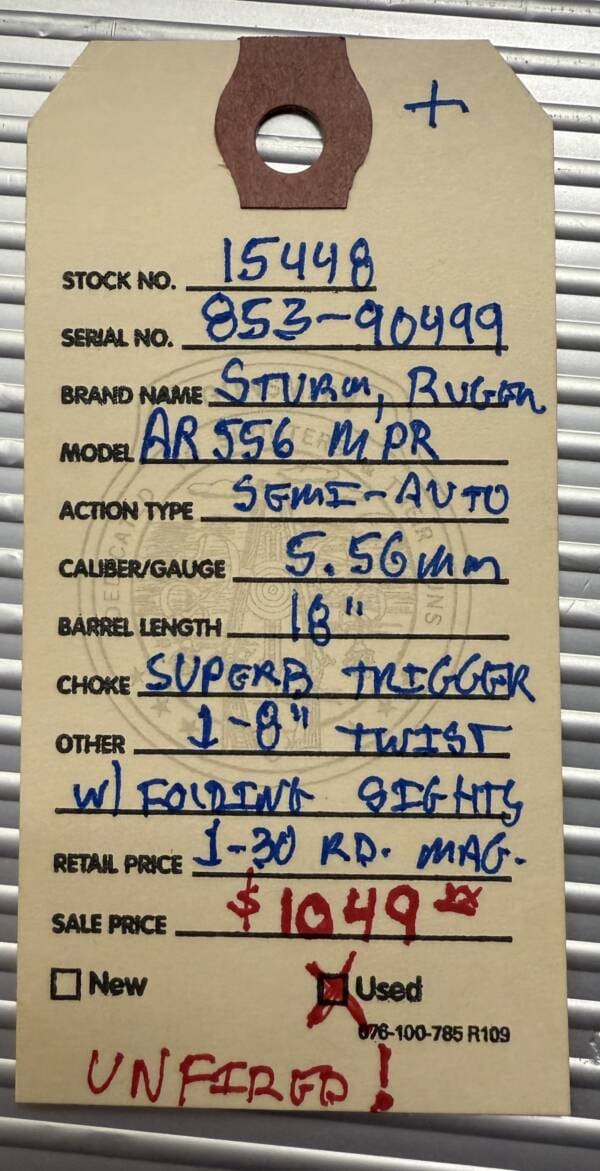 +
STOCK NO. 15448
SERIAL NO. 853-90499
BRAND NAME STURM, RUGER
MODEL AR556 MPR
ACTION TYPE SEMI-AUTO
CALIBER/GAUGE 5.56mm
BARREL LENGTH 18"
CHOKE SUPERB TRIGGER
OTHER 1-8" TWIST
W/ FOLDING SIGHTS
RETAIL PRICE 1-30 RD. MAG.
SALE PRICE $1049 xx
New Used
076-100-785 R109
UNFIRED!